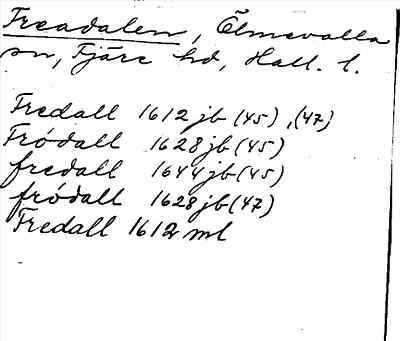 Freadalen, Ölmevalla
sn, Fjäre hd, Hall. l.
Fredall 1612 jb (45), (47)
Fródall 1628 jb (45)
fredall 1644 jb (45)
fródall 1628 jb (47)
Fredall 1612 ml